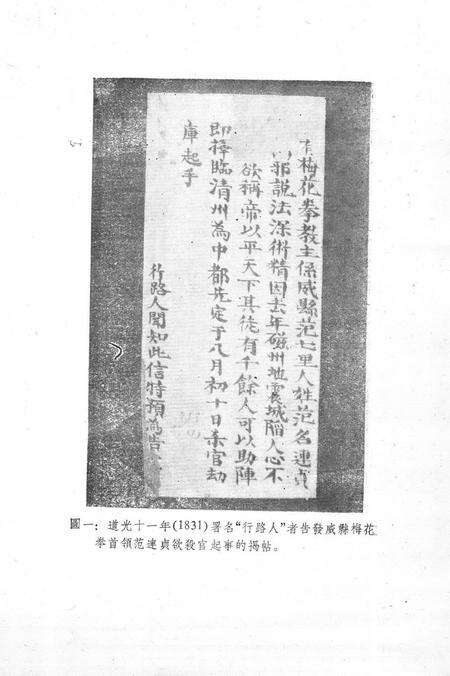 梅花拳教主係威縣范七里人姓范名連貞
邪說法深術精因去年磁州地震城陷人心不
欲稱帝以平天下其徒有千餘人可以助陣
即擇臨清州為中都先定于八月初十日杀官劫
庫起手
行路人聞知此信特預為告
圖一：道光十一年(1831)署名“行路人”者告發威縣梅花
拳首領范連貞欲殺官起事的揭帖。